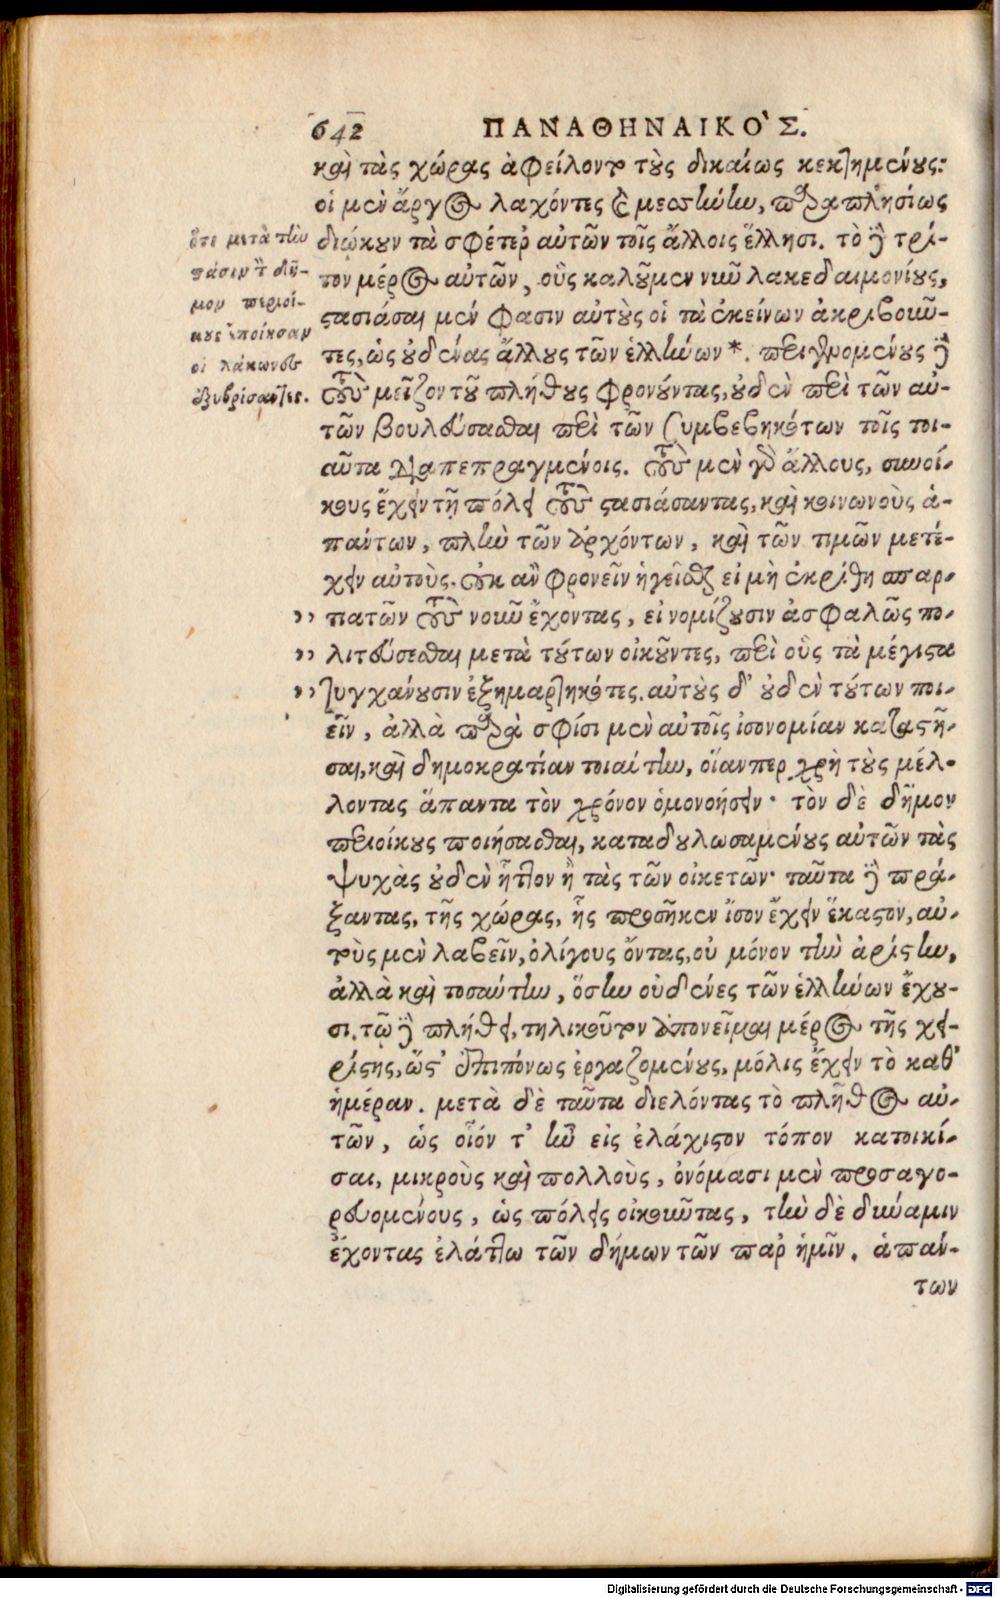 642 ΠΑΝΑΘΗΝΑΙΚΟ`Σ.
καὶ τὰς χώρας ἀφείλοντο τοὺς δικαίως κεκτημένους:
οἱ μὲν ἄργος λαχόντες καὶ μεσσήνην, παραπλησίως
διῴκουν τὰ σφέτερ αὐτῶν τοῖς ἄλλοις ἕλλησι. τὸ δὲ τρί-
τον μέρος αὐτῶν, οὓς καλοῦμεν νῦν λακεδαιμονίους,
στασιάσαι μέν φασιν αὐτοὺς οἱ τὰ ἐκείνων ἀκριβοῦν-
τες, ὡς οὐδένας ἄλλους τῶν ἑλλήνων *. περιγενομένους δὲ
τοὺς μεῖζον τοῦ πλήθους φρονοῦντας, οὐδὲν περὶ τῶν αὐ-
τῶν βουλεύσασθαι περὶ τῶν συμβεβηκότων τοῖς τοι-
αῦτα διαπεπραγμένοις. τοὺς μὲν γὰρ ἄλλους, συνοί-
κους ἔχειν τῇ πόλει τοὺς στασιάσαντας, καὶ κοινωνοὺς ἁ-
πάντων, πλὴν τῶν ἀρχόντων, καὶ τῶν τιμῶν μετέ-
χειν αὐτούς. οὐκ ἂν φρονεῖν ἡγεῖσθαι εἰ μὴ ἐκρίθη σπαρ-
,, τιατῶν τοὺς νοῦν ἔχοντας, εἰ νομίζουσιν ἀσφαλῶς πο-
,, λιτεύσεσθαι μετὰ τούτων οἰκοῦντες, περὶ οὓς τὰ μέγιστα
,, τυγχάνουσιν ἐξημαρτηκότες. αὐτοὺς δ' οὐδὲν τούτων ποι-
εῖν, ἀλλὰ παρὰ σφίσι μὲν αὐτοῖς ἰσονομίαν καταστῆ-
σαι, καὶ δημοκρατίαν τοιαύτην, οἵανπερ χρὴ τοὺς μέλ-
λοντας ἅπαντα τὸν χρόνον ὁμονοήσειν· τὸν δὲ δῆμον
περιοίκους ποιήσασθαι, καταδουλωσαμένους αὐτῶν τὰς
ψυχὰς οὐδὲν ἧττον ἢ τὰς τῶν οἰκετῶν· ταῦτα δὲ πρά-
ξαντας, τῆς χώρας, ἧς προσῆκεν ἴσον ἔχειν ἕκαστον, αὐ-
τοὺς μὲν λαβεῖν, ὀλίγους ὄντας, οὐ μόνον τὴν ἀρίστην,
ἀλλὰ καὶ τοσαύτην, ὅσην οὐδένες τῶν ἑλλήνων ἔχου-
σι. τῷ δὲ πλήθει, τηλικοῦτον ἀπονεῖμαι μέρος τῆς χει-
ρίστης, ὥστ' ἐπιπόνως ἐργαζομένους, μόλις ἔχειν τὸ καθ'
ἡμέραν. μετὰ δὲ ταῦτα διελόντας τὸ πλῆθος αὐ-
τῶν, ὡς οἷόν τ' ἦν εἰς ἐλάχιστον τόπον κατοικί-
σαι, μικροὺς καὶ πολλοὺς, ὀνόμασι μὲν προσαγο-
ρευομένους, ὡς πόλεις οἰκοῦντας, τὴν δὲ δύναμιν
ἔχοντας ἐλάττω τῶν δήμων τῶν παρ ἡμῖν. ἁπάν-
των
ὅτι μετὰ τὴν
στάσιν τὸ δῆ-
μον περιοί-
κους ἐποίησαν
οἱ λάκωνες
ἐξυβρίσαντες.
Digitalisierung gefördert durch die Deutsche Forschungsgemeinschaft - DFG